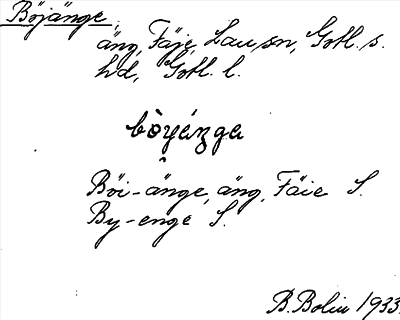 Böjänge,
äng, Fäje, Lau, sn, Gotl. s.
hd, Gotl. l.
bòyánga
Böi-änge, äng, Fäie S.
By-enge S.
B. Bolin 1933.